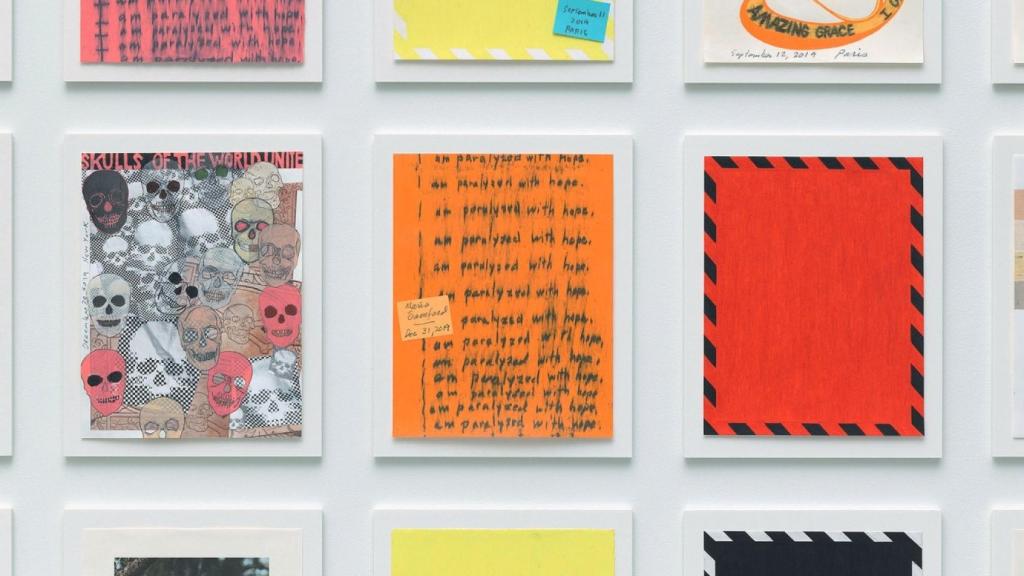 September 11
2019
PARIS
AMAZING GRACE
September 12, 2019 Paris
SKULLS OF THE WORLD UNITE
2019 New York
I am paralyzed with hope.
I am paralyzed with hope.
I am paralyzed with hope.
I am paralyzed with hope.
I am paralyzed with hope.
I am paralyzed with hope.
Maria
Bamford
Dec 31, 2019
paralyzed with hope.
I am paralyzed with hope.
I am paralyzed with hope.
I am paralyzed with hope.
am paralyzed with hope.
am paralyzed with hope
am paralyzed with hope.